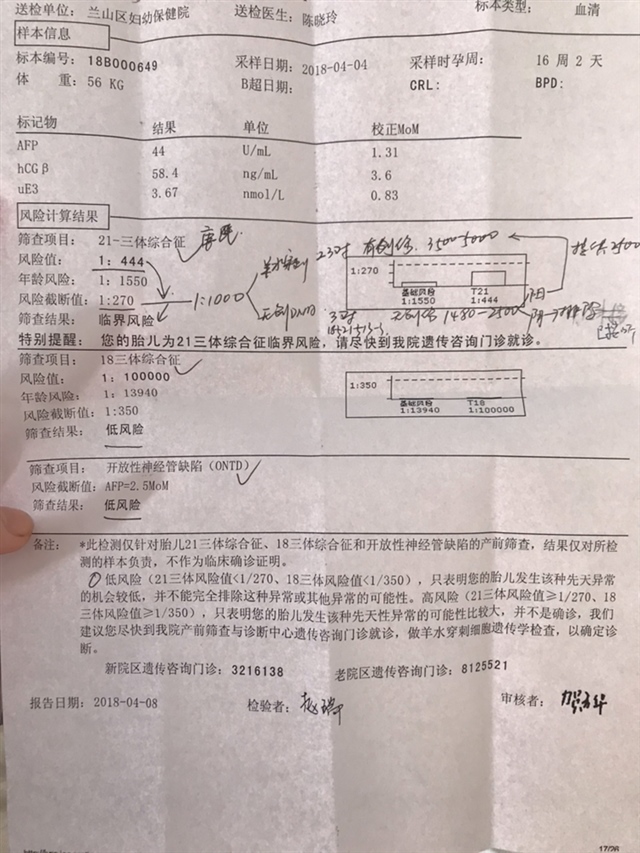 送检单位： 兰山区妇幼保健院 送检医生： 陈晓玲 标本类型： 血清
样本信息
标本编号： 18B000649 采样日期： 2018-04-04 采样时孕周： 16 周 2 天
体 重： 56 KG B超日期： CRL： BPD：
标记物 结果 单位 校正MoM
AFP 44 U/mL 1.31
hCG β 58.4 ng/mL 3.6
uE3 3.67 nmol/L 0.83
风险计算结果
筛查项目： 21-三体综合征 唐氏
风险值： 1: 444
年龄风险： 1: 1550
风险截断值: 1:270 1:1000
筛查结果： 临界风险
23时 有创伤 3500-5000
1:270
基础风险 T21
1:1550 1:444
无创DNA 无创伤 1480-2500
特别提醒： 您的胎儿为21三体综合征临界风险，请尽快到我院遗传咨询门诊就诊。
筛查项目： 18三体综合征
风险值： 1: 100000
年龄风险： 1: 13940
风险截断值：1:350
筛查结果： 低风险
1:350
基础风险 T18
1:13940 1:100000
筛查项目： 开放性神经管缺陷（ONTD）
风险截断值：AFP=2.5MoM
筛查结果： 低风险
备注： *此检测仅针对胎儿21三体综合征、18三体综合征和开放性神经管缺陷的产前筛查，结果仅对所检
测的样本负责，不作为临床确诊证明。
低风险（21三体风险值<1/270、18三体风险值<1/350），只表明您的胎儿发生该种先天异常
的机会较低，并不能完全排除这种异常或其他异常的可能性。高风险（21三体风险值≥1/270、18
三体风险值≥1/350），只表明您的胎儿发生该种先天性异常的可能性比较大，并不是确诊，我们
建议您尽快到我院产前筛查与诊断中心遗传咨询门诊就诊，做羊水穿刺细胞遗传学检查，以确定诊
断。
新院区遗传咨询门诊：3216138 老院区遗传咨询门诊：8125521
报告日期：2018-04-08 检验者： 审核者：
17/26